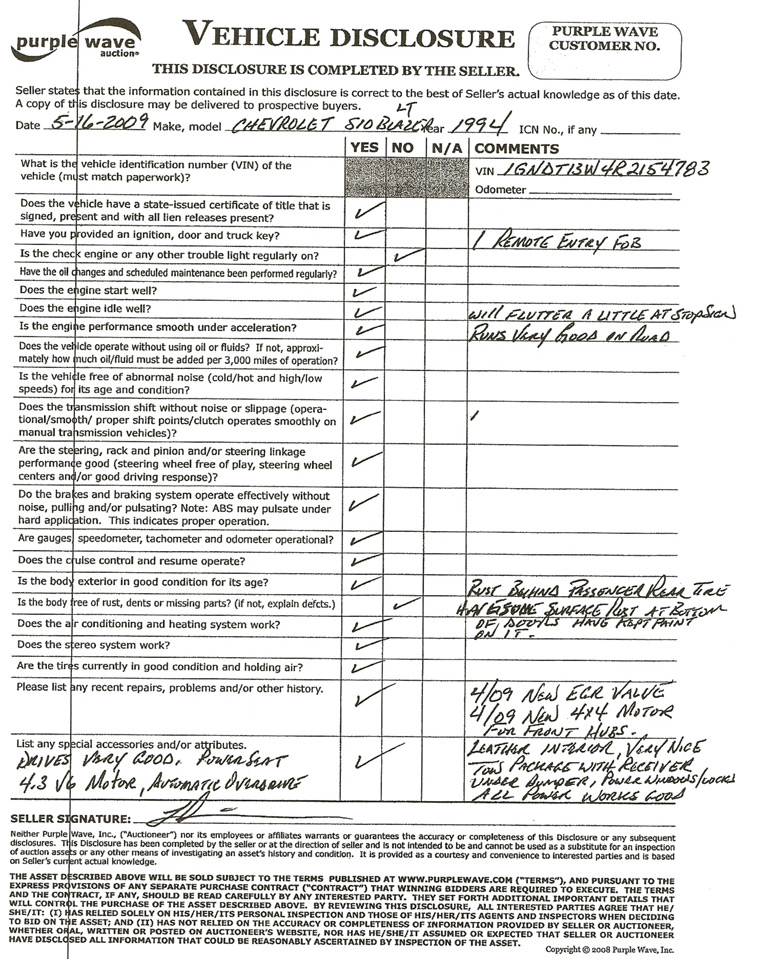 purple wave
auction®
VEHICLE DISCLOSURE
THIS DISCLOSURE IS COMPLETED BY THE SELLER.
PURPLE WAVE
CUSTOMER NO.
Seller states that the information contained in this disclosure is correct to the best of Seller's actual knowledge as of this date.
A copy of this disclosure may be delivered to prospective buyers.
LT
Date 5-16-2009 Make, model CHEVROLET S10 BLAZER Year 1994 ICN No., if any
YES NO N/A COMMENTS
What is the vehicle identification number (VIN) of the
vehicle (must match paperwork)?
VIN 1GNDT13W4R2154783
Odometer
Does the vehicle have a state-issued certificate of title that is
signed, present and with all lien releases present?
Have you provided an ignition, door and truck key?
1 REMOTE ENTRY FOB
Is the check engine or any other trouble light regularly on?
Have the oil changes and scheduled maintenance been performed regularly?
Does the engine start well?
Does the engine idle well?
WILL FLUTTER A LITTLE AT STOP SIGN
Is the engine performance smooth under acceleration?
RUNS VERY GOOD ON ROAD
Does the vehicle operate without using oil or fluids? If not, approxi-
mately how much oil/fluid must be added per 3,000 miles of operation?
Is the vehicle free of abnormal noise (cold/hot and high/low
speeds) for its age and condition?
Does the transmission shift without noise or slippage (opera-
tional/smooth/ proper shift points/clutch operates smoothly on
manual transmission vehicles)?
Are the steering, rack and pinion and/or steering linkage
performance good (steering wheel free of play, steering wheel
centers and/or good driving response)?
Do the brakes and braking system operate effectively without
noise, pulling and/or pulsating? Note: ABS may pulsate under
hard application. This indicates proper operation.
Are gauges, speedometer, tachometer and odometer operational?
Does the cruise control and resume operate?
Is the body exterior in good condition for its age?
RUST BEHIND PASSENGER REAR TIRE
Is the body free of rust, dents or missing parts? (if not, explain defcts.)
HAVE SOME SURFACE RUST AT BOTTOM
Does the air conditioning and heating system work?
OF DOORS HAVE KEPT PAINT
ON IT.
Does the stereo system work?
Are the tires currently in good condition and holding air?
Please list any recent repairs, problems and/or other history.
4/09 NEW EGR VALVE
4/09 NEW 4X4 MOTOR
FOR FRONT HUBS.
List any special accessories and/or attributes.
DRIVES VERY GOOD, POWER SEAT
4.3 V6 MOTOR, AUTOMATIC OVERDRIVE
LEATHER INTERIOR, VERY NICE
TOW PACKAGE WITH RECEIVER
UNDER BUMPER, POWER WINDOWS/LOCKS
ALL POWER WORKS GOOD
SELLER SIGNATURE:
Neither Purple Wave, Inc., ("Auctioneer") nor its employees or affiliates warrants or guarantees the accuracy or completeness of this Disclosure or any subsequent
disclosures. This Disclosure has been completed by the seller or at the direction of seller and is not intended to be and cannot be used as a substitute for an inspection
of auction assets or any other means of investigating an asset's history and condition. It is provided as a courtesy and convenience to interested parties and is based
on Seller's current actual knowledge.
THE ASSET DESCRIBED ABOVE WILL BE SOLD SUBJECT TO THE TERMS PUBLISHED AT WWW.PURPLEWAVE.COM ("TERMS"), AND PURSUANT TO THE
EXPRESS PROVISIONS OF ANY SEPARATE PURCHASE CONTRACT ("CONTRACT") THAT WINNING BIDDERS ARE REQUIRED TO EXECUTE. THE TERMS
AND THE CONTRACT, IF ANY, SHOULD BE READ CAREFULLY BY ANY INTERESTED PARTY. THEY SET FORTH ADDITIONAL IMPORTANT DETAILS THAT
WILL CONTROL THE PURCHASE OF THE ASSET DESCRIBED ABOVE. BY REVIEWING THIS DISCLOSURE, ALL INTERESTED PARTIES AGREE THAT HE/
SHE/IT: (I) HAS RELIED SOLELY ON HIS/HER/ITS PERSONAL INSPECTION AND THOSE OF HIS/HER/ITS AGENTS AND INSPECTORS WHEN DECIDING
TO BID ON THE ASSET; AND (II) HAS NOT RELIED ON THE ACCURACY OR COMPLETENESS OF INFORMATION PROVIDED BY SELLER OR AUCTIONEER,
WHETHER ORAL, WRITTEN OR POSTED ON AUCTIONEER'S WEBSITE, NOR HAS HE/SHE/IT ASSUMED OR EXPECTED THAT SELLER OR AUCTIONEER
HAVE DISCLOSED ALL INFORMATION THAT COULD BE REASONABLY ASCERTAINED BY INSPECTION OF THE ASSET.
Copyright © 2008 Purple Wave, Inc.